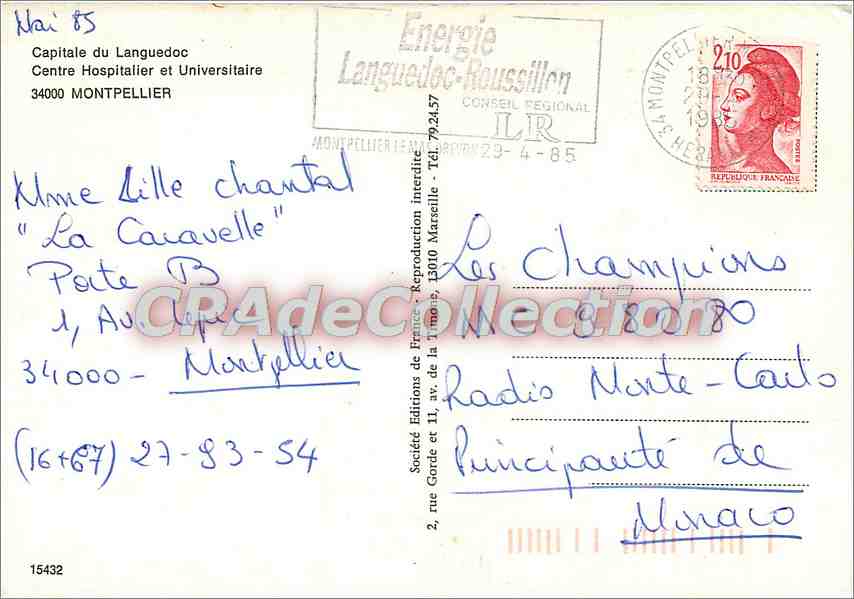 Mai 85
Capitale du Languedoc
Centre Hospitalier et Universitaire
34000 MONTPELLIER
Energie
Languedoc-Roussillon
CONSEIL REGIONAL
LR
MONTPELLIER LE MAS DREVON 29-4-85
34 MONTPELLIER
18H
198
HERA
2,10
POSTES
REPUBLIQUE FRANÇAISE
Mme Lille Chantal
"La Caravelle"
Porte B
1, Av. Lepic
34000 - Montpellier
(16+67) 27-93-54
Société Editions de France - Reproduction interdite
2, rue Gorde et 11, av. de la Timone, 13010 Marseille - Tél. 79.24.57
Les Champions
MC 98080
Radio Monte-Carlo
Principauté de
Monaco
CPAdeCollection
15432